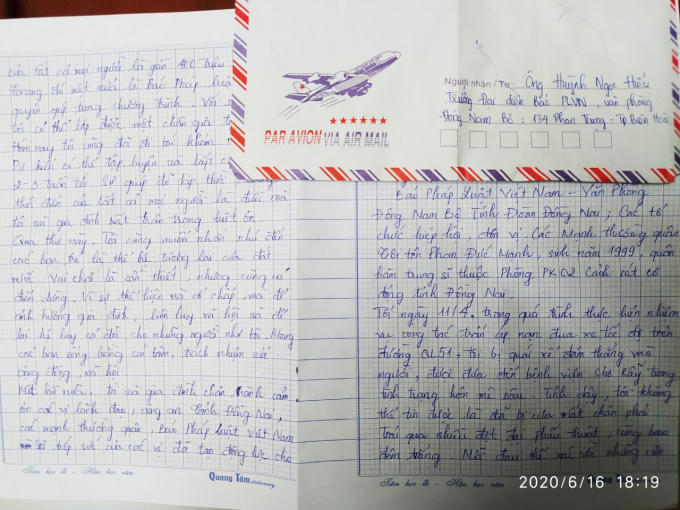 Người nhận / To: Ông Huỳnh Ngọc Hiếu
Trưởng Đại diện Báo PLVN, văn phòng
Đông Nam Bộ: 134 Phan Trung - Tp Biên Hoà
PAR AVION VIA AIR MAIL
của tất cả mọi người là gần 400 triệu
đồng chỉ một nửa là Báo Pháp luật
quyên góp trong chương trình. Với
tôi có thể lắp được một chân giả
Hôm nay tôi cũng đã đi tái khám
2-3 tuần tới. Sự giúp đỡ kịp thời
của tất cả mọi người là điều mà
tôi và gia đình thật trân trọng biết ơn
Qua thư này, Tôi cũng muốn nhắn nhủ đến
các bạn trẻ là thế hệ tương lai của đất
nước. Vui chơi là cần thiết, nhưng cũng có
điểm dừng. Vì sự thể hiện mà cố chấp, mà để
ảnh hưởng gia đình, liên luỵ xã hội và để
lại hệ luỵ cả đời cho những người như tôi. Mong
các bạn sống bằng cái tâm, trách nhiệm với
cộng đồng, xã hội
Một lần nữa, tôi và gia đình chân thành cảm
ơn các vị lãnh đạo, công an Tỉnh Đồng Nai,
các mạnh thường quân, Báo Pháp luật Việt Nam
tiếp sức của các vị đã tạo động lực cho
Tiên học lễ - Hậu học văn
Quang Tâm
Báo Pháp luật Việt Nam - Văn Phòng
Đông Nam Bộ Tỉnh Đoàn Đồng Nai; Các tổ
chức hiệp hội, đơn vị. Các Mạnh thường quân
Tôi tên Phan Đức Mạnh, sinh năm 1999, quân
hàm trung sĩ thuộc Phòng PK02 Cảnh sát cơ
động tỉnh Đồng Nai.
Tối ngày 11/4, trong quá trình thực hiện nhiệm
vụ công tác trấn áp nạn đua xe tốc độ trên
đường QL51, tôi bị quái xế đâm thẳng vào
người, được đưa đến bệnh viện Chợ Rẫy trong
tình trạng hôn mê sâu. Tỉnh dậy, tôi không
thể tin được là đã bị cưa mất chân phải
Trải qua nhiều đợt đại phẫu thuật, cùng bao
đêm trắng. Nỗi đau thể xác với những
Tiên học lễ - Hậu học văn
2020/6/16 18:19